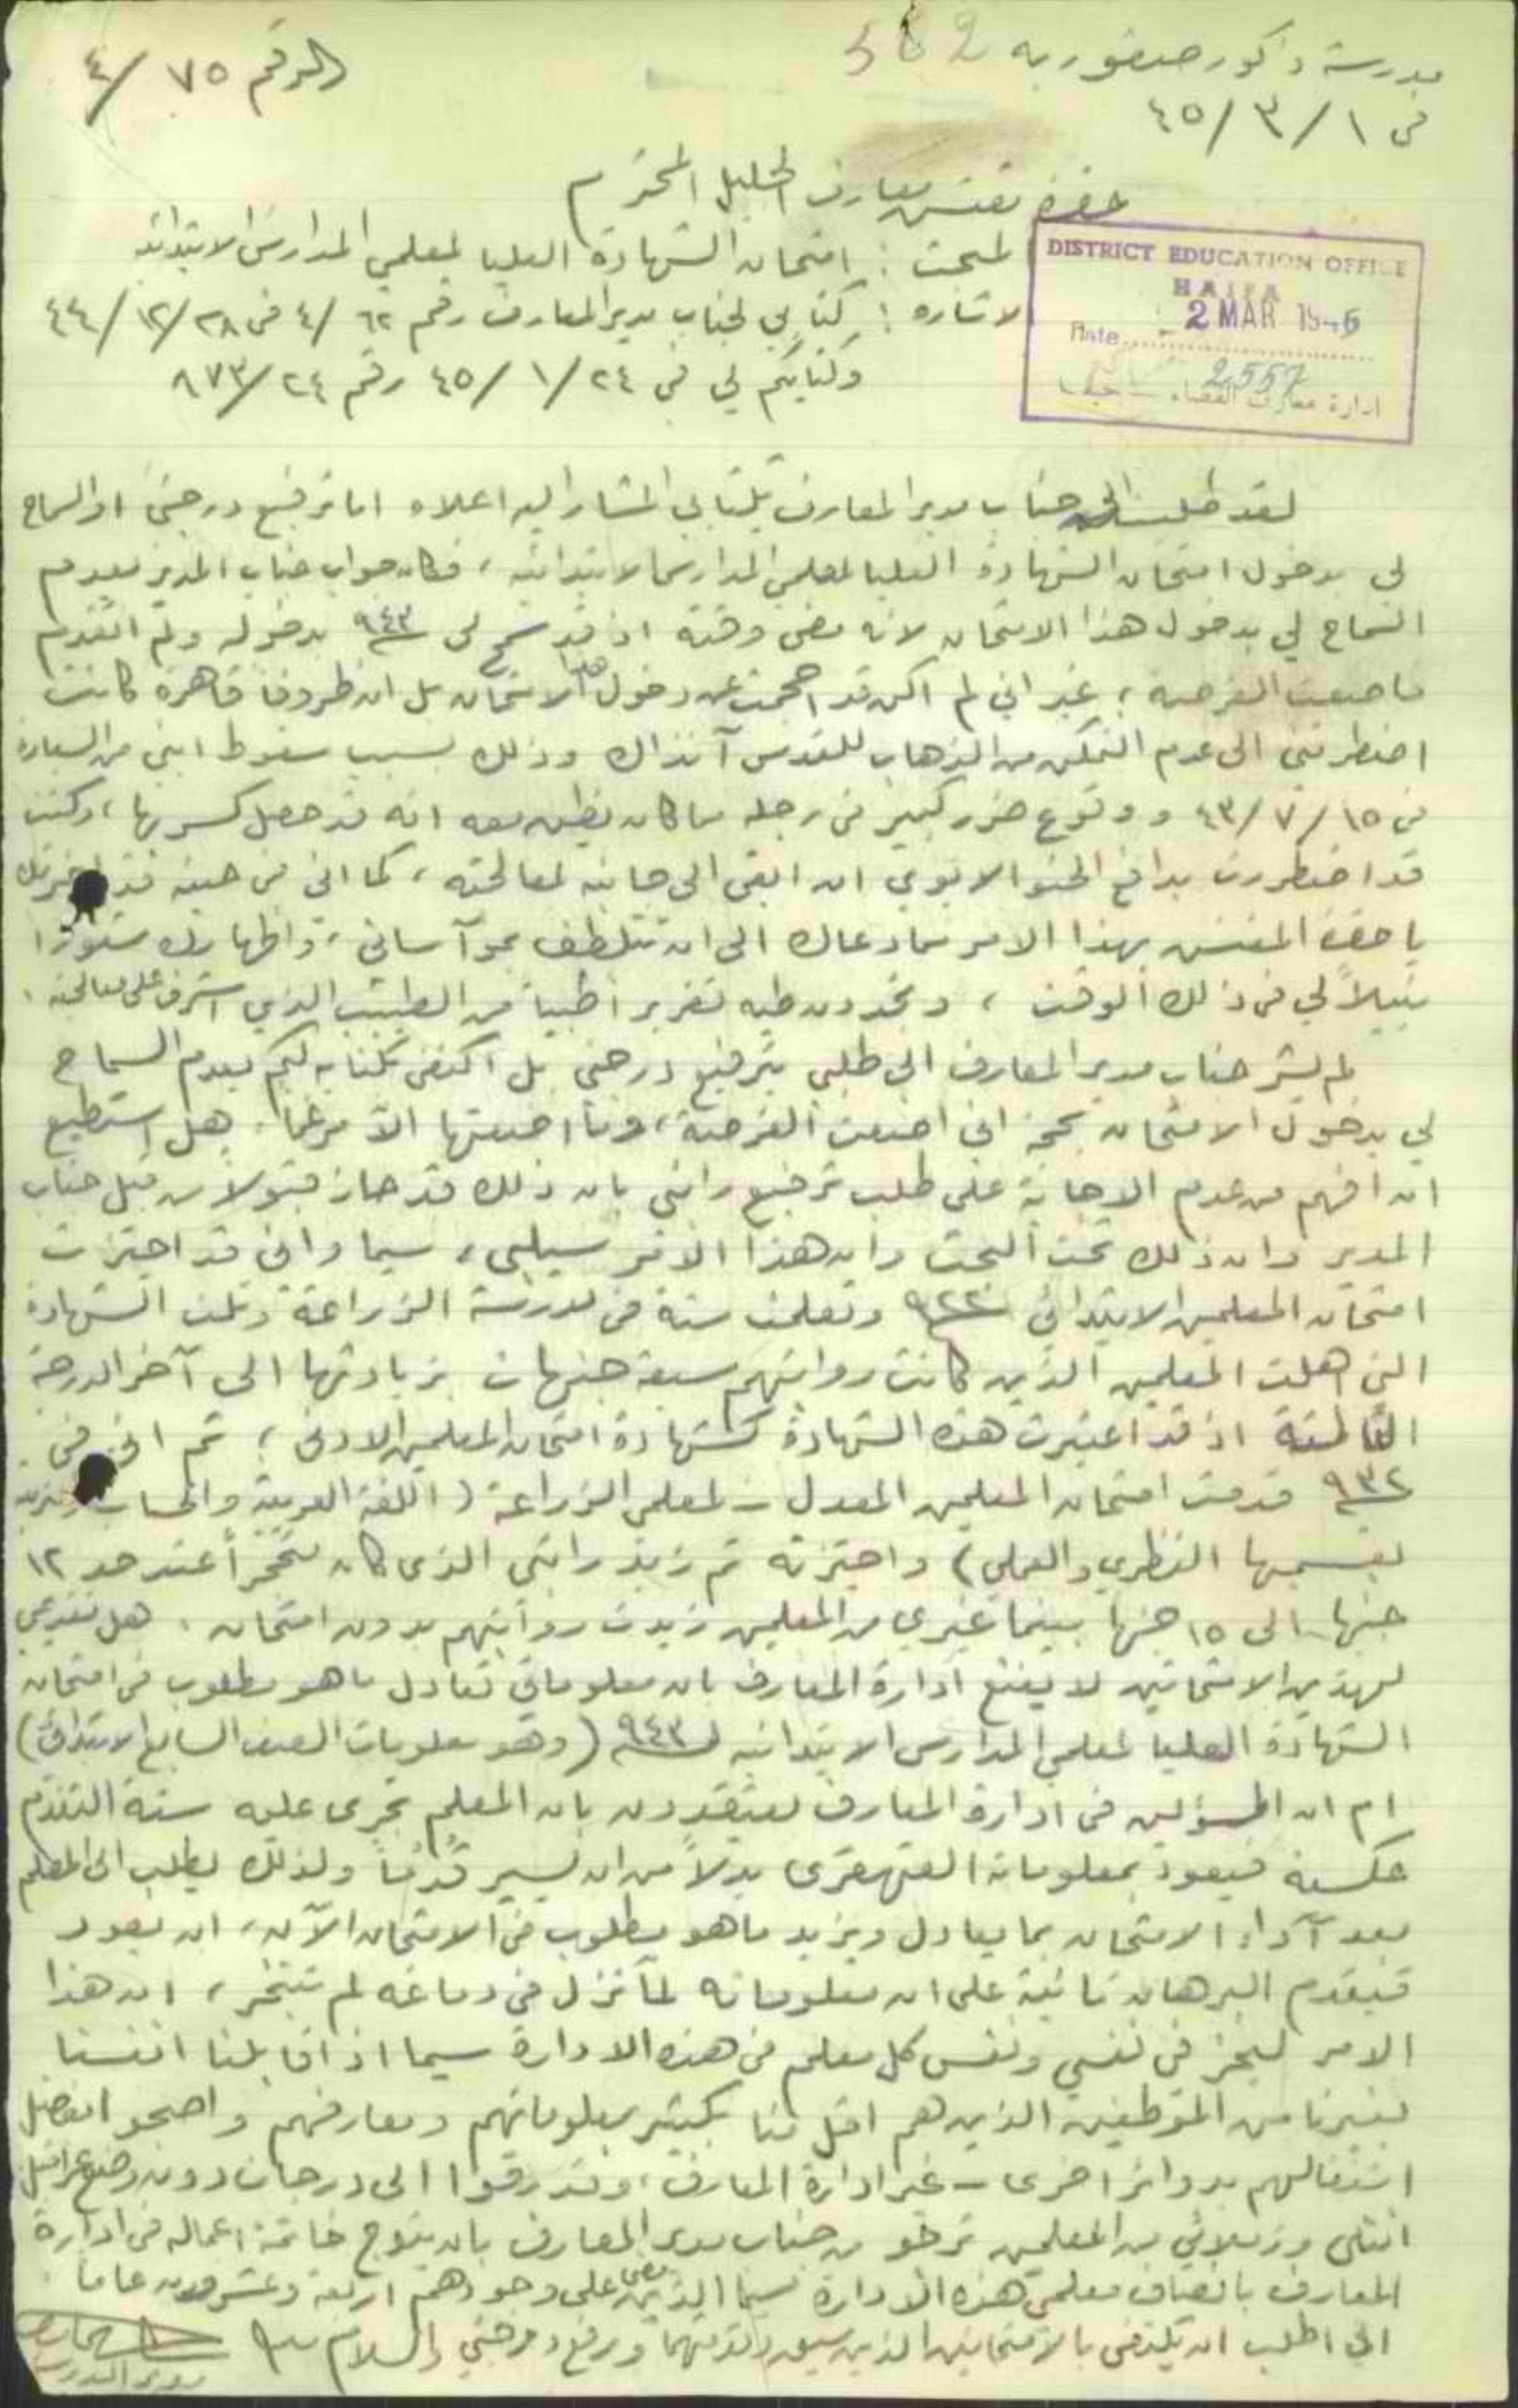 مدرسة ذكور صفوريه 562
الرقم ٧٥ /٤
في ١ /٣ /٤٥
حضرة مفتش معارف الجليل المحترم
DISTRICT EDUCATION OFFICE
HAIFA
Date 2 MAR 1945
2557
ادارة معارف القضاء – حيفا
المبحث : امتحان الشهادة العليا لمعلمي المدارس الابتدائيه
الاشاره : كتابي لجناب مدير المعارف رقم ٦٢ /٤ في ٢٨ /١٢ /٤٤
وكتابكم لي في ٢٤ /١ /٤٥ رقم ٢٤ /٨٧٣
لقد طلبت الى جناب مدير المعارف بكتابي المشار اليه اعلاه اما ترفيع درجتي او السماح
لي بدخول امتحان الشهادة العليا لمعلمي المدارس الابتدائيه ، فكان جواب جناب المدير بعدم
السماح لي بدخول هذا الامتحان لانه مضى وقته اذ قد سمح لي ٩٤٣ بدخوله ولم اتقدم
فاضعت الفرصة ، غير اني لم اكن قد احجمت عن دخول هذا الامتحان بل ان ظروفا قاهرة كانت
اضطرتني الى عدم التمكن من الذهاب للقدس آنذاك وذلك بسبب سقوط ابني من السيارة
في ١٥ /٧ /٤٣ ووقوع ضرر كبير في رجله مما كان يظن معه انه قد حصل كسر بها ، وكنت
قد اضطررت بدافع الحنو الابوي ان ابقى الى جانبه لمعالجته ، كما اني في حينه قد اخبرتك
يا حضرة المفتش بهذا الامر مما دعاك الى ان تتلطف بمواساتي ، واظهارك شعورا
نبيلاً لي في ذلك الوقت ، وتجدون طيه تقريرا طبياً من الطبيب الذي اشرف على معالجته .
لم يشر جناب مدير المعارف الى طلبي بترفيع درجتي بل اكتفى بكتابه لكم بعدم السماح
لي بدخول الامتحان بحجة اني اضعت الفرصة ، وما اضعتها الا مرغما . هل استطيع
ان افهم من عدم الاجابة على طلب ترفيع راتبي بان ذلك قد حاز قبولا من قبل جناب
المدير وان ذلك تحت البحث وان هذا الامر سيلبى ، سيما واني قد اجتزت
امتحان المعلمين الابتدائي ٩٢٢ وتعلمت سنة في مدرسة الزراعة ونلت الشهادة
التي اهلت المعلمين الذين كانت رواتبهم سبعة جنيهات بزيادتها الى آخر الدرجة
الثالثة اذ قد اعتبرت هذه الشهادة كشهادة امتحان المعلمين الادنى ؛ ثم اني في
٩٣٢ قدمت امتحان المعلمين المعدل – لمعلمي الزراعة ( اللغة العربية والحساب والتربية
بقسميها النظري والعملي ) واجتزته ثم زيد راتبي الذي كان متحجراً عند حد ١٢
جنيها الى ١٥ جنيها بينما غيري من المعلمين زيدت رواتبهم بدون امتحان . هل تقديمي
لهذين الامتحانين لا يقنع ادارة المعارف بان معلوماتي تعادل ما هو مطلوب في امتحان
الشهادة العليا لمعلمي المدارس الابتدائيه لـ ٩٤٣ ( وهو معلومات الصف السابع الابتدائي )
ام ان المسؤلين في ادارة المعارف يعتقدون بان المعلم تجري عليه سنة التقدم
عكسية فيعود بمعلوماته القهقرى بدلاً من ان يسير قدماً ولذلك يطلب الى المعلم
بعد آداء الامتحان بما يعادل ويزيد ما هو مطلوب في الامتحان الآن ، ان يعود
فيقدم البرهان ثانية على ان معلوماته لما تزل في دماغه لم تتبخر ، ان هذا
الامر ليحز في نفسي ونفس كل معلم في هذه الادارة سيما اذا قابلنا انفسنا
بغيرنا من الموظفين الذين هم اقل منا بكثير بمعلوماتهم ومعارفهم واضحوا بفضل
اشتغالهم بدوائر اخرى – غير ادارة المعارف ، وقد رقوا الى درجات دون وضع عراقيل
انني وزملائي من المعلمين نرجو من جناب مدير المعارف بان يتوج خاتمة اعماله في ادارة
المعارف بانصاف معلمي هذه الادارة سيما الذين مضى على وجودهم اربعة وعشرون عاما
اني اطلب ان يكتفى بالامتحانين الذين سبق وقدمتهما ورفع درجتي والسلام
مدير المدرسة